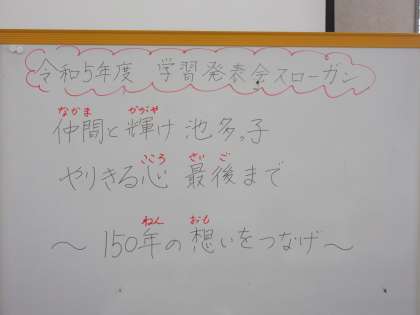 令和5年度 学習発表会スローガン
なかま かがや
仲間と輝け 池多っ子
こころ さい ご
やりきる心 最後まで
ねん おも
～ 150年の想いをつなげ～